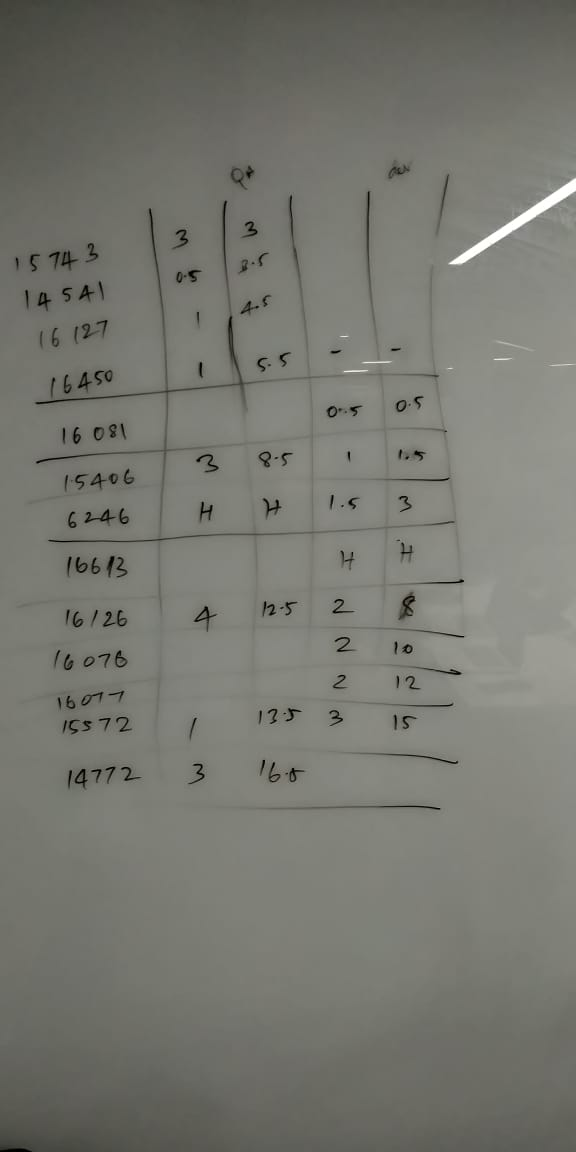 QA dev
15743 3 3
14541 0.5 3.5
16127 1 4.5
16450 1 5.5 - -
16081 0.5 0.5
15406 3 8.5 1 1.5
6246 H H 1.5 3
16613 H H
16126 4 12.5 2 8
16076 2 10
16077 2 12
15572 1 13.5 3 15
14772 3 16.5